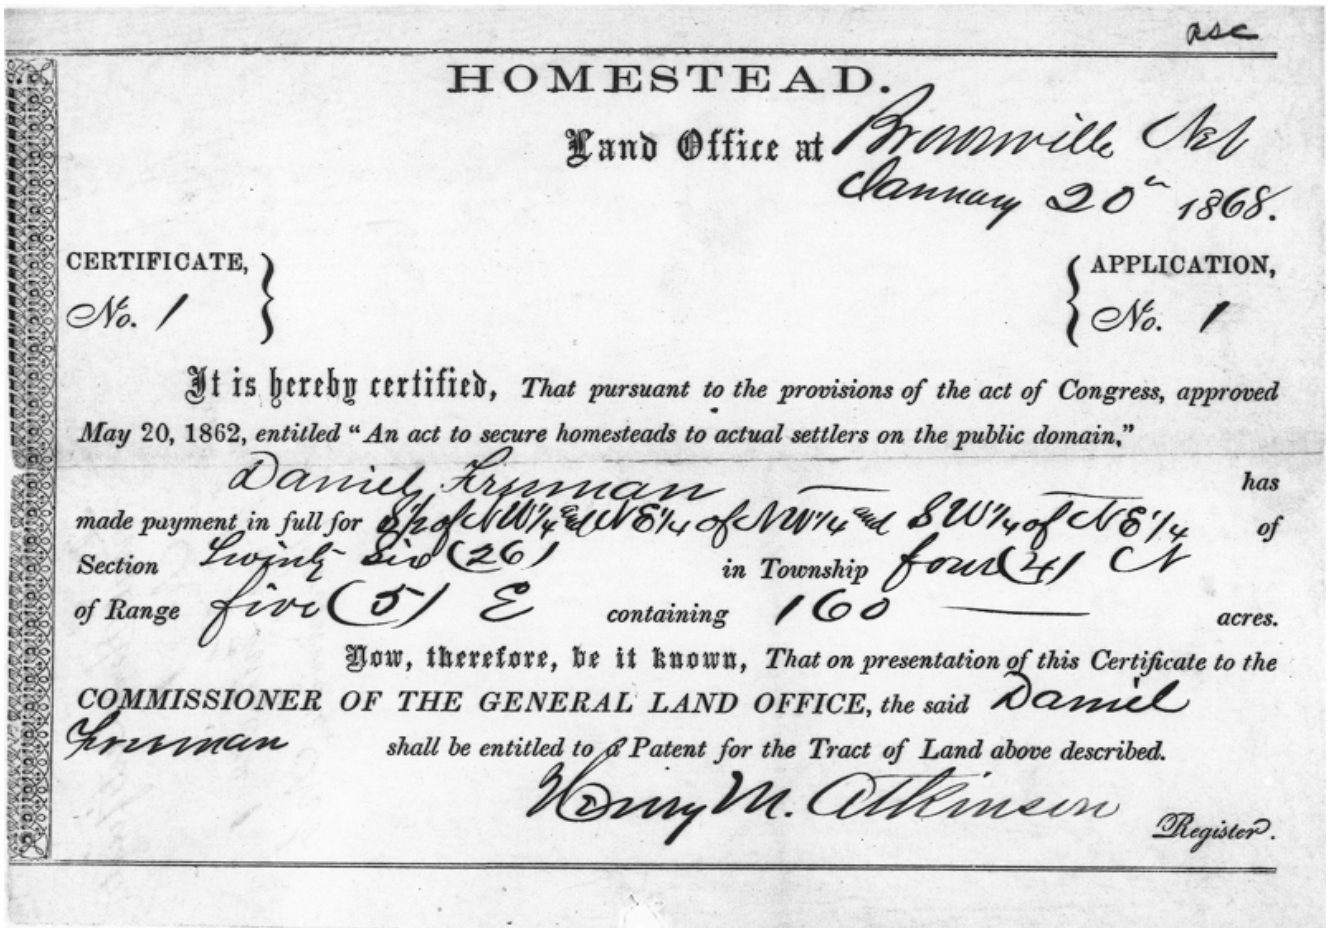 asc
HOMESTEAD.
Land Office at Brownville Neb
January 20th 1868.
CERTIFICATE, } { APPLICATION,
No. 1 } { No. 1
It is hereby certified, That pursuant to the provisions of the act of Congress, approved
May 20, 1862, entitled “An act to secure homesteads to actual settlers on the public domain,”
Daniel Freeman has
made payment in full for S½ of NW¼ and NE¼ of NW¼ and SW¼ of NE¼ of
Section Twenty Six (26) in Township four (4) N
of Range five (5) E containing 160 acres.
Now, therefore, be it known, That on presentation of this Certificate to the
COMMISSIONER OF THE GENERAL LAND OFFICE, the said Daniel
Freeman shall be entitled to a Patent for the Tract of Land above described.
Henry M. Atkinson
Register.